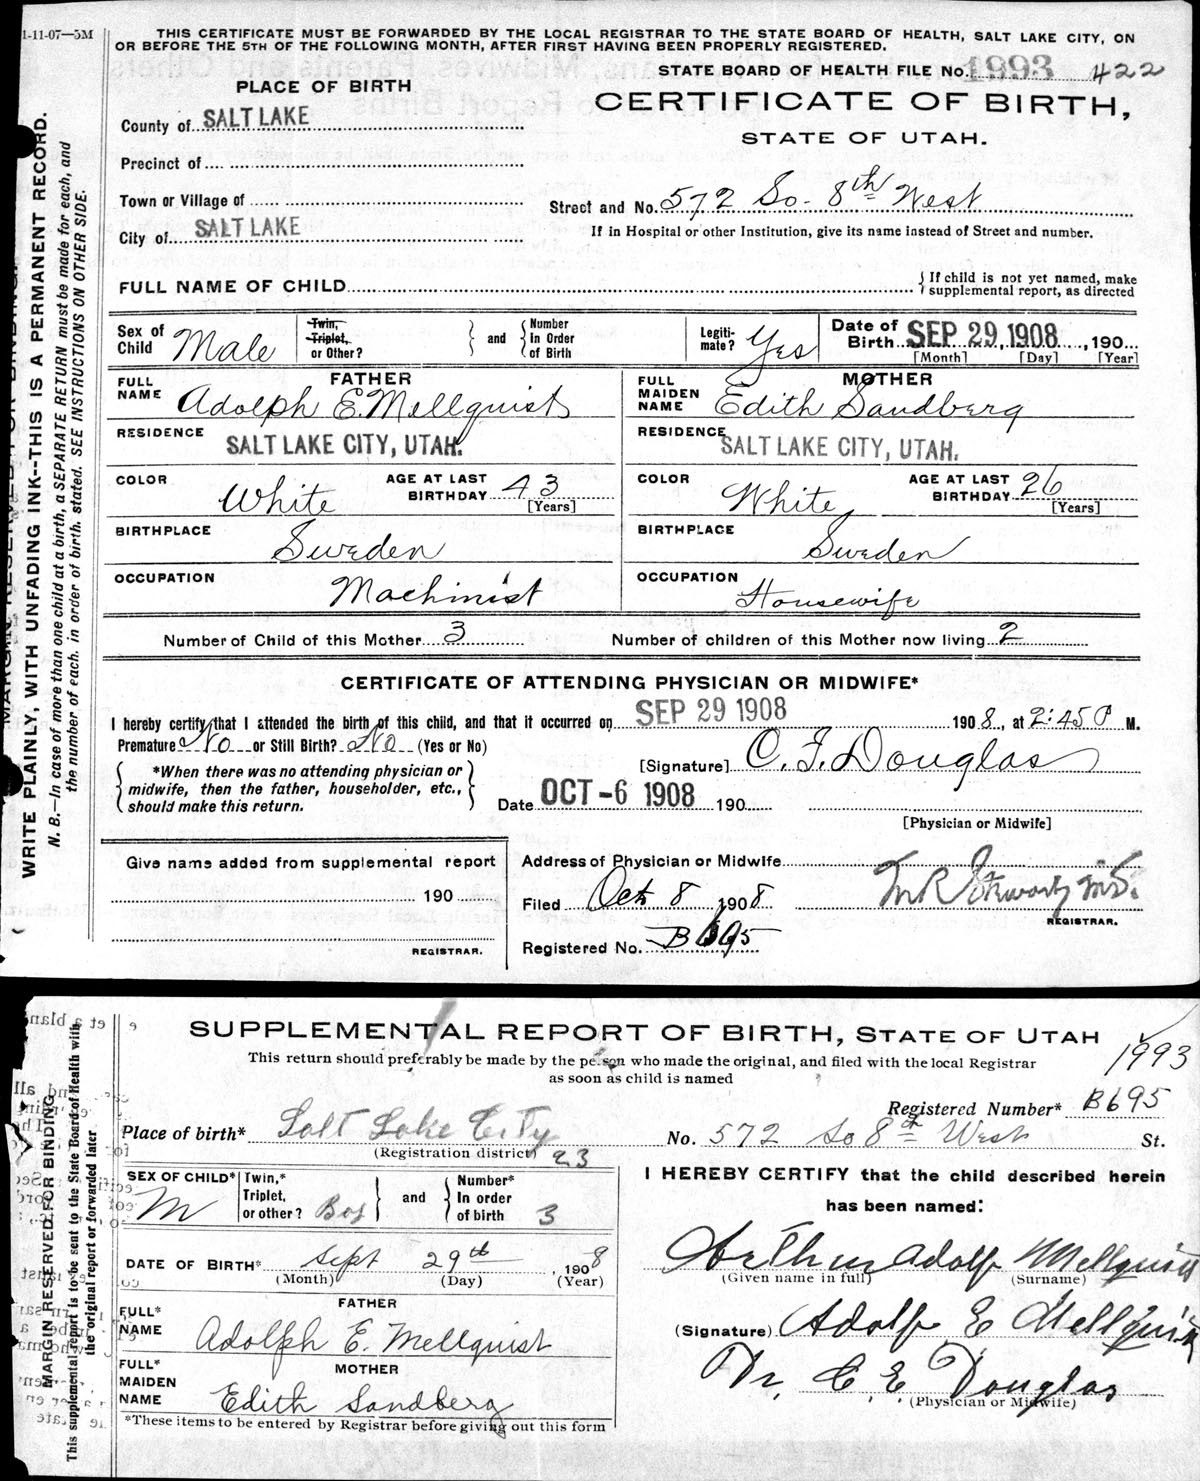 1-11-07—5M
THIS CERTIFICATE MUST BE FORWARDED BY THE LOCAL REGISTRAR TO THE STATE BOARD OF HEALTH, SALT LAKE CITY, ON
OR BEFORE THE 5TH OF THE FOLLOWING MONTH, AFTER FIRST HAVING BEEN PROPERLY REGISTERED.
STATE BOARD OF HEALTH FILE No. 1993 422
PLACE OF BIRTH
CERTIFICATE OF BIRTH,
STATE OF UTAH.
County of SALT LAKE
Precinct of
Town or Village of
Street and No. 572 So. 8th West
City of SALT LAKE
If in Hospital or other Institution, give its name instead of Street and number.
FULL NAME OF CHILD
If child is not yet named, make
supplemental report, as directed
Sex of Child Male
Twin, Triplet, or Other?
and
Number In Order of Birth
Legiti-mate? Yes
Date of Birth SEP 29, 1908, 190
[Month] [Day] [Year]
FATHER
FULL NAME Adolph E. Mellquist
MOTHER
FULL MAIDEN NAME Edith Sandberg
RESIDENCE SALT LAKE CITY, UTAH.
RESIDENCE SALT LAKE CITY, UTAH.
COLOR White AGE AT LAST BIRTHDAY 43 [Years]
COLOR White AGE AT LAST BIRTHDAY 26 [Years]
BIRTHPLACE Sweden
BIRTHPLACE Sweden
OCCUPATION Machinist
OCCUPATION Housewife
Number of Child of this Mother 3 Number of children of this Mother now living 2
CERTIFICATE OF ATTENDING PHYSICIAN OR MIDWIFE*
I hereby certify that I attended the birth of this child, and that it occurred on SEP 29 1908 1908, at 2:45 P M.
Premature No or Still Birth? No (Yes or No)
*When there was no attending physician or
midwife, then the father, householder, etc.,
should make this return.
[Signature] C. F. Douglas
Date OCT -6 1908 190
[Physician or Midwife]
Give name added from supplemental report
190
REGISTRAR.
Address of Physician or Midwife
Filed Oct 8 1908
REGISTRAR.
Registered No. B695
MARGIN RESERVED FOR BINDING.
WRITE PLAINLY, WITH UNFADING INK--THIS IS A PERMANENT RECORD.
N. B.—In case of more than one child at a birth, a SEPARATE RETURN must be made for each, and
the number of each, in order of birth, stated. SEE INSTRUCTIONS ON OTHER SIDE.
SUPPLEMENTAL REPORT OF BIRTH, STATE OF UTAH
This return should preferably be made by the person who made the original, and filed with the local Registrar
as soon as child is named
1993
Registered Number* B695
Place of birth* Salt Lake City No. 572 So 8th West St.
(Registration district) 23
SEX OF CHILD* M
Twin,* Triplet, or other? Boy
and
Number* In order of birth 3
I HEREBY CERTIFY that the child described herein
has been named:
Arthur Adolf Mellquist
(Given name in full) (Surname)
DATE OF BIRTH* Sept 29th, 1908
(Month) (Day) (Year)
FATHER
FULL* NAME Adolph E. Mellquist
(Signature) Adolf E Mellquist
MOTHER
FULL* MAIDEN NAME Edith Sandberg
Dr. C. E. Douglas
(Physician or Midwife)
*These items to be entered by Registrar before giving out this form
MARGIN RESERVED FOR BINDING
This supplemental report is to be sent to the State Board of Health with
the original report or forwarded later